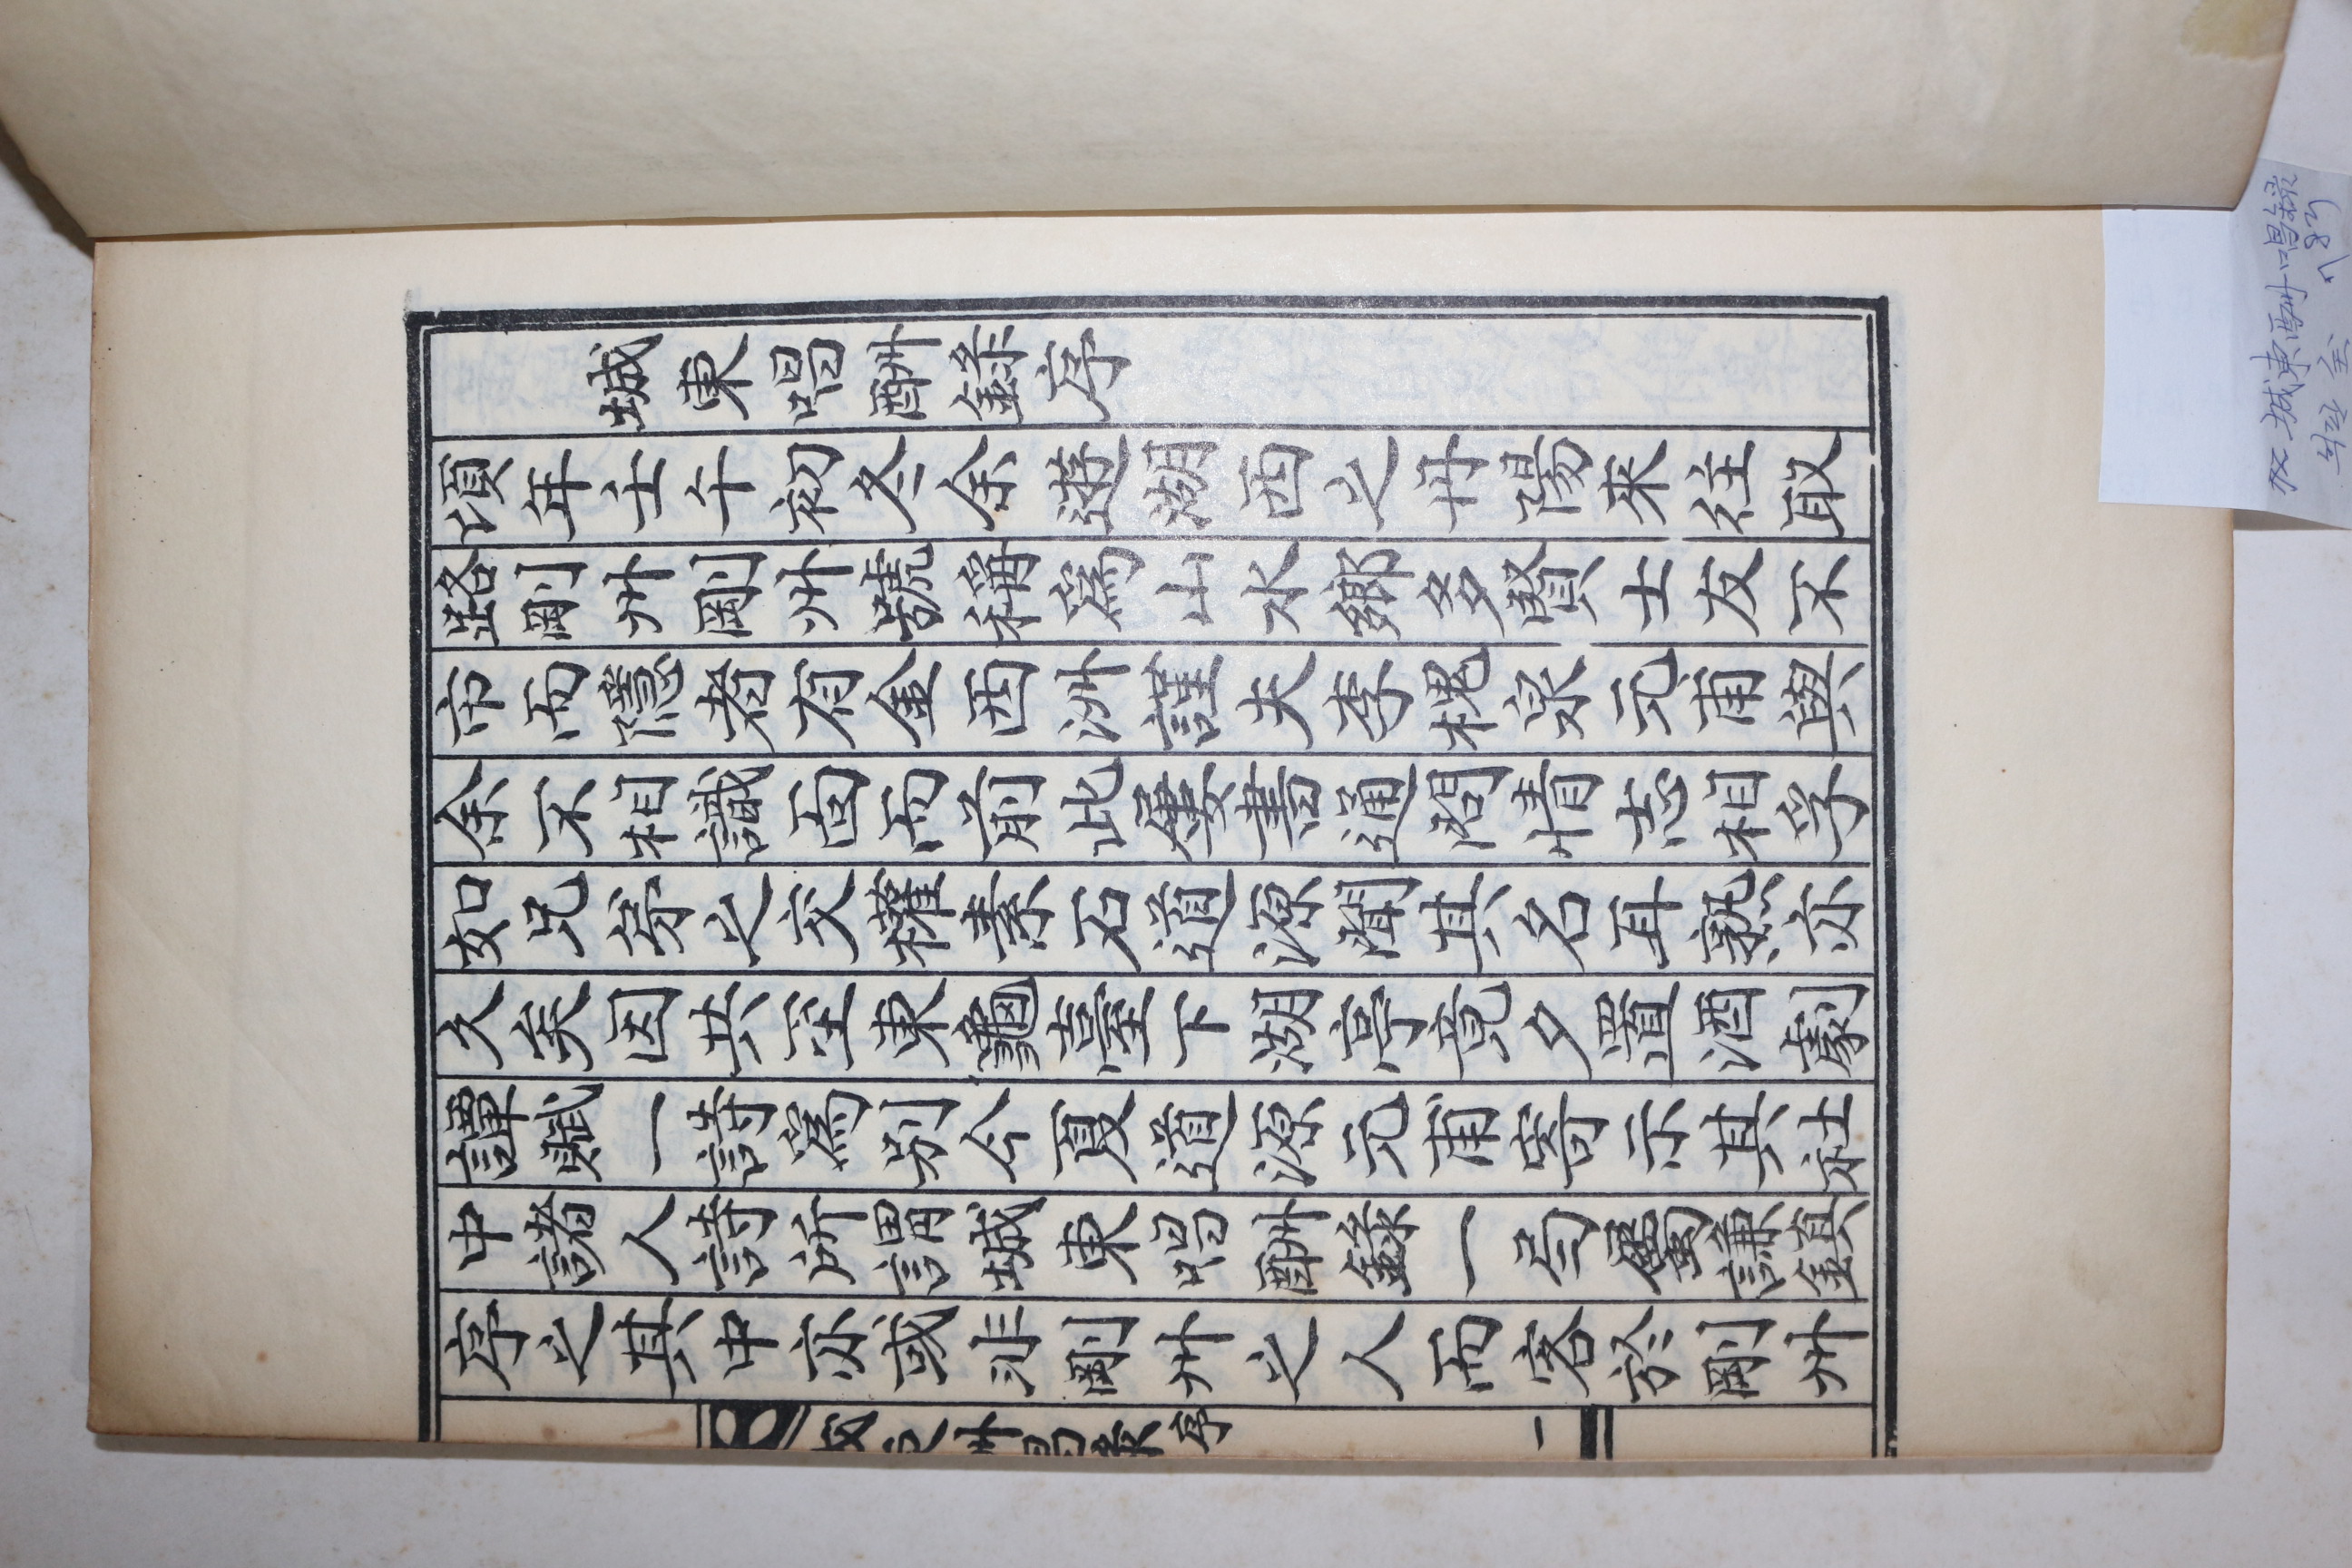 城東唱酬錄序
頃年壬午初冬余遊湖西之丹陽來往取
路剛州剛州號稱爲山水鄕多賢士友不
市而隱者有金西洲謹夫李槐泉元甫與
余不相識面而前此屢書通問情志相孚
如兄弟之交權素石道源聞其名耳熟亦
久矣因共至東龜臺下湖亭竟夕置酒劇
譚賦一詩爲別今夏道源元甫寄示其社
中諸人詩所謂城東唱酬錄一弓屬謙鎮
序之其中亦或非剛州之人而客於剛州
序
一
城東酬唱錄